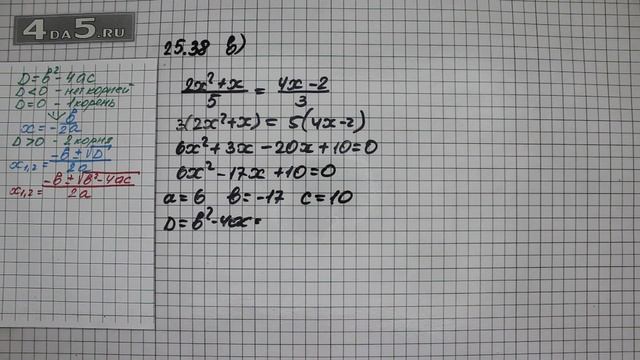 4DA5.RU
D=b²-4ac
D<0 - нет корней
D=0 - 1 корень
x=-b/2a
D>0 - 2 корня
x₁,₂=(-b±√D)/2a
x₁,₂=(-b±√b²-4ac)/2a
25.38 в)
(2x²+x)/5=(4x-2)/3
3(2x²+x)=5(4x-2)
6x²+3x-20x+10=0
6x²-17x+10=0
a=6 b=-17 c=10
D=b²-4ac=